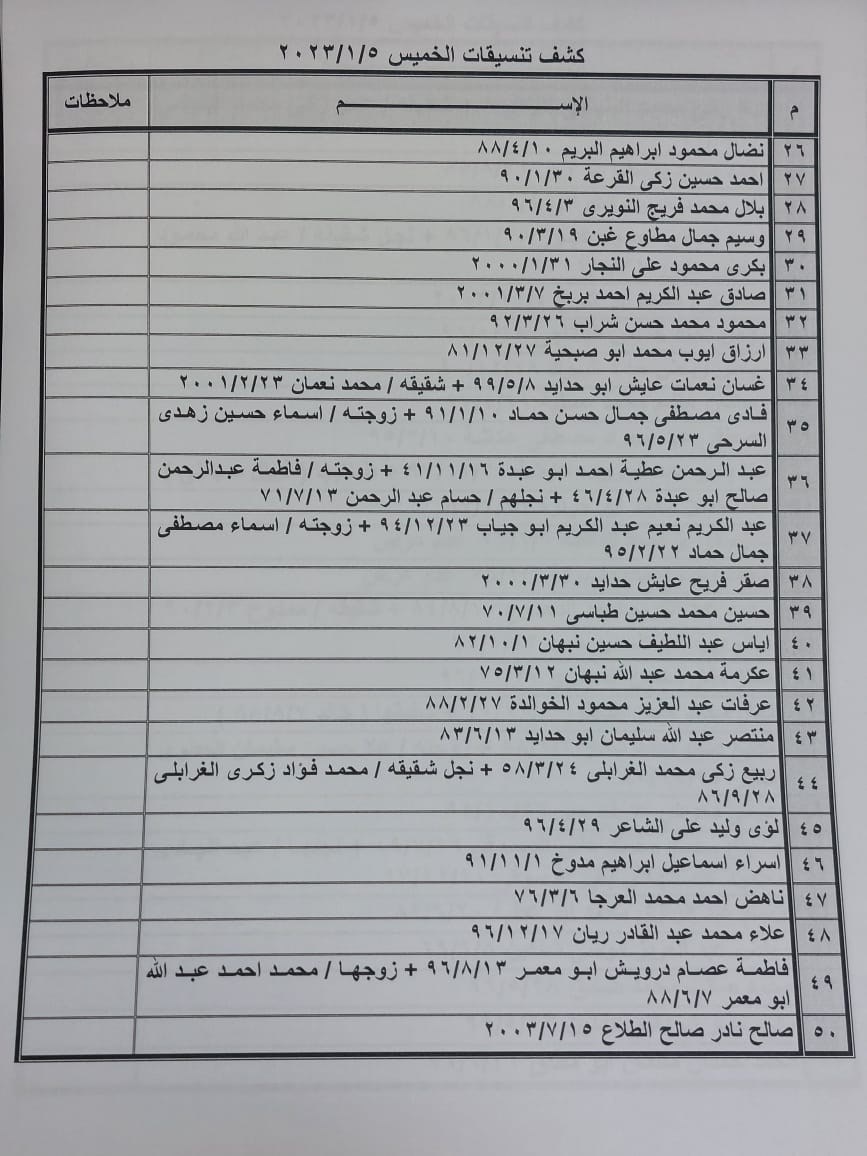 كشف تنسيقات الخميس ٢٠٢٣/١/٥
م الإســـــــم ملاحظات
٢٦ نضال محمود ابراهيم البريم ٨٨/٤/١٠
٢٧ احمد حسين زكى القرعة ٩٠/١/٣٠
٢٨ بلال محمد فريج النويرى ٩٦/٤/٣
٢٩ وسيم جمال مطاوع غبن ٩٠/٣/١٩
٣٠ بكرى محمود على النجار ٢٠٠٠/١/٣١
٣١ صادق عبد الكريم احمد بربخ ٢٠٠١/٣/٧
٣٢ محمود محمد حسن شراب ٩٢/٣/٢٦
٣٣ ارزاق ايوب محمد ابو صبحية ٨١/١٢/٢٧
٣٤ غسان نعمات عايش ابو حدايد ٩٩/٥/٨ + شقيقه / محمد نعمان ٢٠٠١/٢/٢٣
٣٥ فادى مصطفى جمال حسن حماد ٩١/١/١٠ + زوجته / اسماء حسين زهدى
السرحى ٩٦/٥/٢٣
٣٦ عبد الرحمن عطية احمد ابو عبدة ٤١/١١/١٦ + زوجته / فاطمة عبدالرحمن
صالح ابو عبدة ٤٦/٤/٢٨ + نجلهم / حسام عبد الرحمن ٧١/٧/١٣
٣٧ عبد الكريم نعيم عبد الكريم ابو جياب ٩٤/١٢/٢٣ + زوجته / اسماء مصطفى
جمال حماد ٩٥/٢/٢٢
٣٨ صقر فريح عايش حدايد ٢٠٠٠/٣/٣٠
٣٩ حسين محمد حسين طباسى ٧٠/٧/١١
٤٠ اياس عبد اللطيف حسين نبهان ٨٢/١٠/١
٤١ عكرمة محمد عبد الله نبهان ٧٥/٣/١٢
٤٢ عرفات عبد العزيز محمود الخوالدة ٨٨/٢/٢٧
٤٣ منتصر عبد الله سليمان ابو حدايد ٨٣/٦/١٣
٤٤ ربيع زكى محمد الغرابلى ٥٨/٣/٢٤ + نجل شقيقه / محمد فؤاد زكرى الغرابلى
٨٦/٩/٢٨
٤٥ لؤى وليد على الشاعر ٩٦/٤/٢٩
٤٦ اسراء اسماعيل ابراهيم مدوخ ٩١/١١/١
٤٧ ناهض احمد محمد العرجا ٧٦/٣/٦
٤٨ علاء محمد عبد القادر ريان ٩٦/١٢/١٧
٤٩ فاطمة عصام درويش ابو معمر ٩٦/٨/١٣ + زوجها / محمد احمد عبد الله
ابو معمر ٨٨/٦/٧
٥٠ صالح نادر صالح الطلاع ٢٠٠٣/٧/١٥